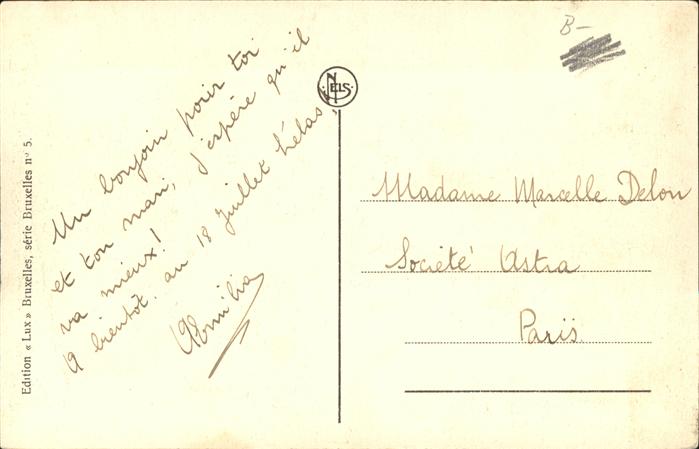 Un bonjoir pour toi
et ton mari, j'espère qu'il
va mieux!
A bientôt. au 18 Juillet hélas!
Edition « Lux » Bruxelles, série Bruxelles nº 5.
NELS
B-
Madame Marcelle Delon
Société Astra
Paris.